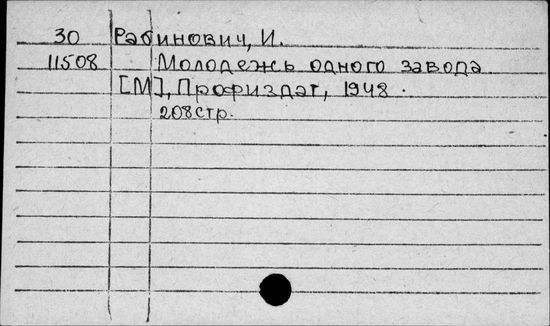 30 Рабинович, И.
11508 Молодежь одного завода
[М], Профиздат, 1948.
208 стр.